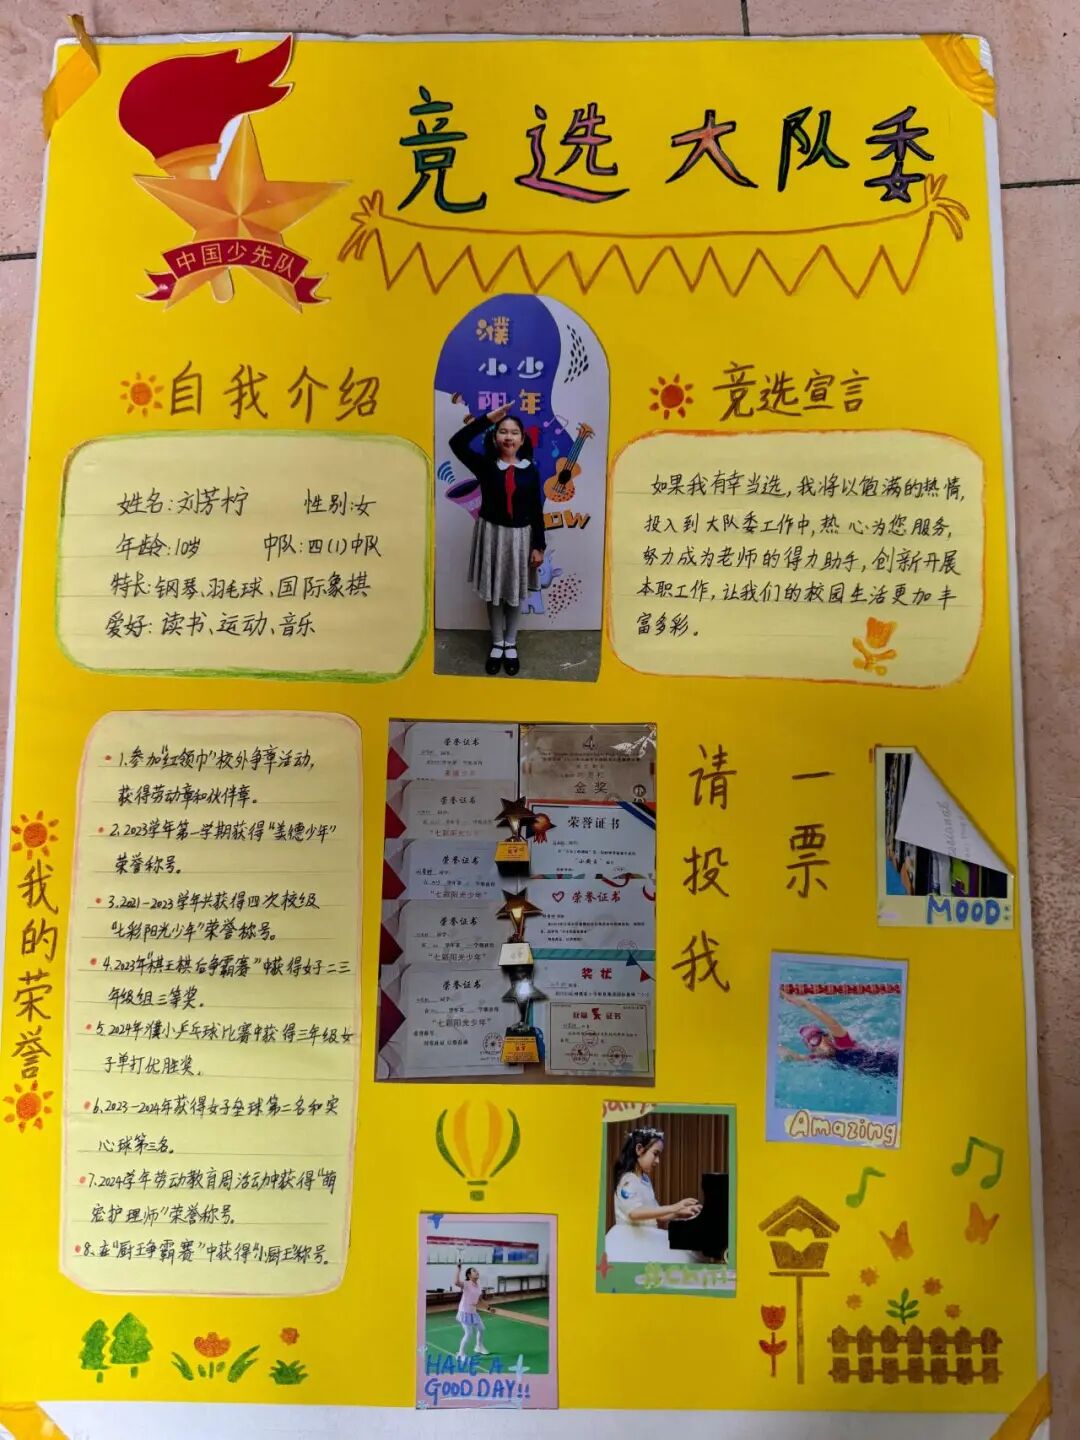 竞选大队委
中国少先队
自我介绍
姓名:刘芳柠 性别:女
年龄:10岁 中队:四(1)中队
特长:钢琴、羽毛球、国际象棋
爱好:读书、运动、音乐
濮
小少
阳年
OW
竞选宣言
如果我有幸当选,我将以饱满的热情,
投入到大队委工作中,热心为您服务,
努力成为老师的得力助手,创新开展
本职工作,让我们的校园生活更加丰
富多彩。
我的荣誉
1.参加“红领巾”校外争章活动,
获得劳动章和伙伴章。
2.2023学年第一学期获得“美德少年”
荣誉称号。
3.2021-2023学年共获得四次校级
“七彩阳光少年”荣誉称号。
4.2023年“棋王棋后争霸赛”中获得女子二三
年级组三等奖。
5.2024年濮小乒乓球比赛中获得三年级女
子单打优胜奖。
6.2023-2024年获得女子垒球第二名和实
心球第三名。
7.2024学年劳动教育周活动中获得“萌
宠护理师”荣誉称号。
8.在“厨王争霸赛”中获得“小厨王”称号。
荣誉证书
荣誉证书
“七彩阳光少年”
荣誉证书
“七彩阳光少年”
荣誉证书
“七彩阳光少年”
荣誉证书
“七彩阳光少年”
金奖
荣誉证书
荣誉证书
奖状
证书
请投我
一票
MOOD:
Amazing
HAVE A
GOOD DAY!!